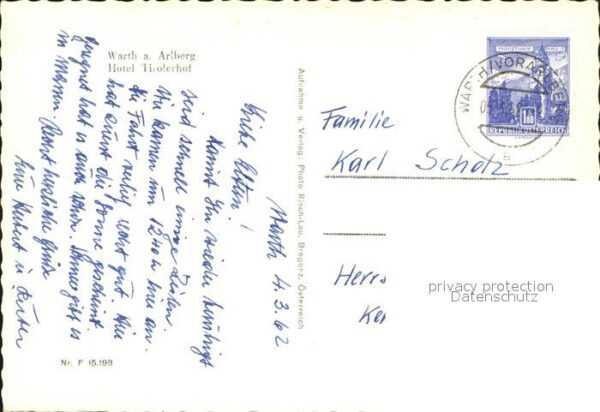 Warth a. Arlberg
Hotel Tirolerhof
Warth 4.3.62
Liebe Eltern!
Damit Ihr wieder beruhigt
seid schnell einige Zeilen.
Wir kamen um 12h hier an.
die Fahrt verlief recht gut. Hier
hat zuerst die Sonne gescheint
geregnet hat es auch schon. Schnee gibt es
in Massen. Recht herzliche Grüße
Eure Hubert u.
Nr. F 15.193
Aufnahme u. Verlag: Photo Risch-Lau, Bregenz, Österreich
WARTH/VORARLBERG
1.80
REPUBLIK ÖSTERREICH
Familie
Karl Scholz
Herrs
Ke
privacy protection
Datenschutz